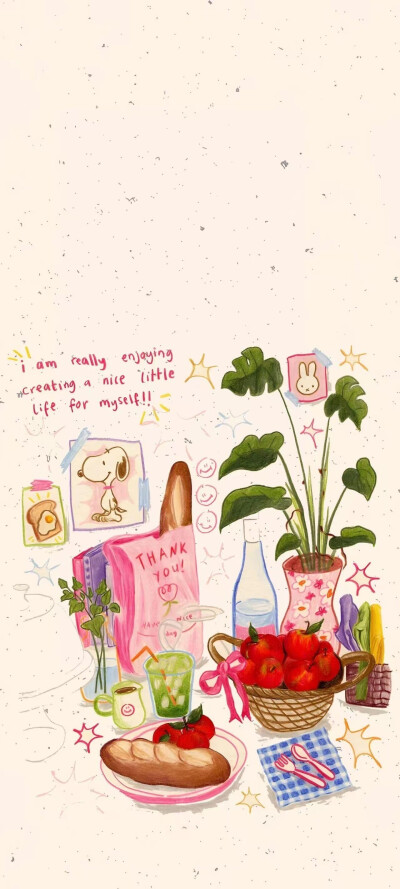 i am really enjoying
creating a nice little
life for myself!!
THANK
YOU!
HAVE A NICE
DAY